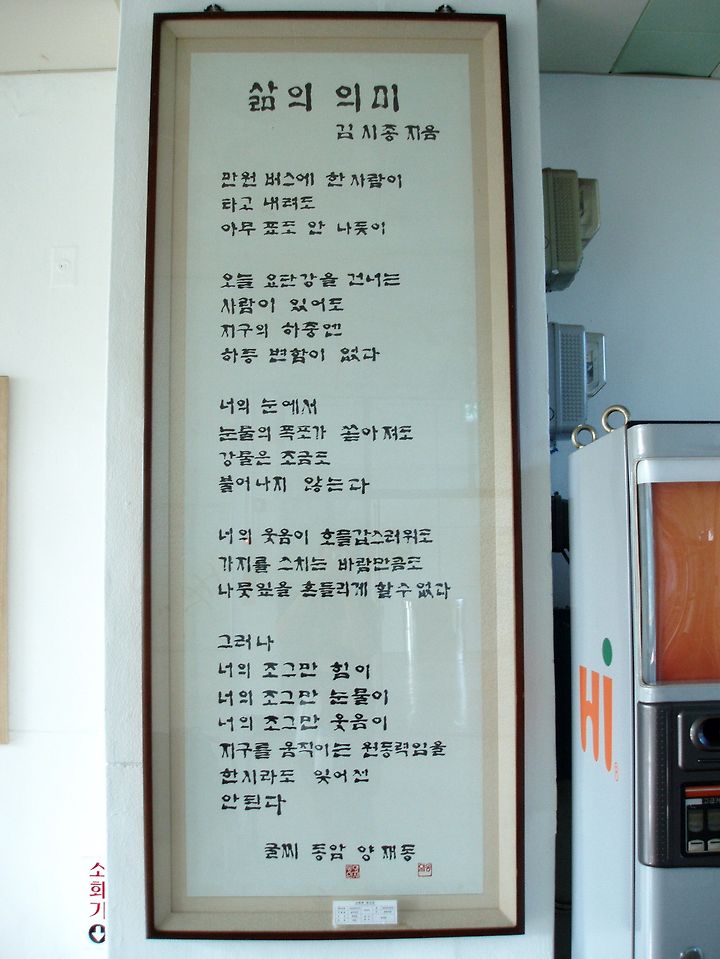 삶의 의미
김시종 지음
만원 버스에 한 사람이
타고 내려도
아무 표도 안 나듯이
오늘 요단강을 건너는
사람이 있어도
지구의 하중엔
하등 변함이 없다
너의 눈에서
눈물의 폭포가 쏟아져도
강물은 조금도
불어나지 않는다
너의 웃음이 호들갑스러워도
가지를 스치는 바람만큼도
나뭇잎을 흔들리게 할 수 없다
그러나
너의 조그만 힘이
너의 조그만 눈물이
너의 조그만 웃음이
지구를 움직이는 원동력임을
한시라도 잊어선
안된다
글씨 동암 양재동
소화기
Hi